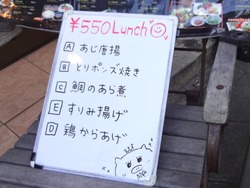 ¥550Lunch
A あじ唐揚
B とりポンズ焼き
C 鯛のあら煮
E すりみ揚げ
D 鶏からあげ